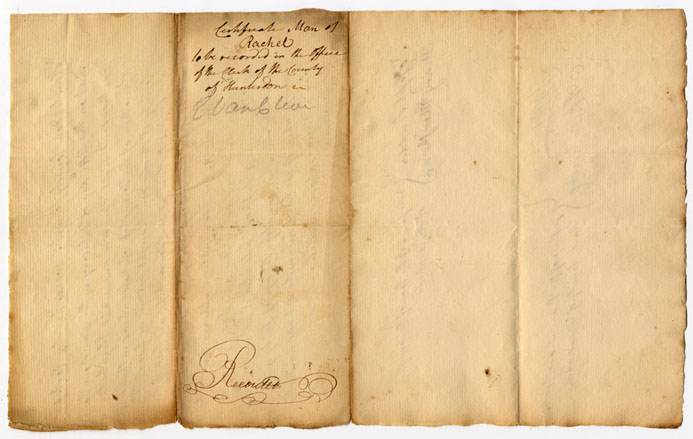 Certificate Man of
Rachel
to be recorded in the Office
of the Clerk of the County
of Hunterdon in
Recorded